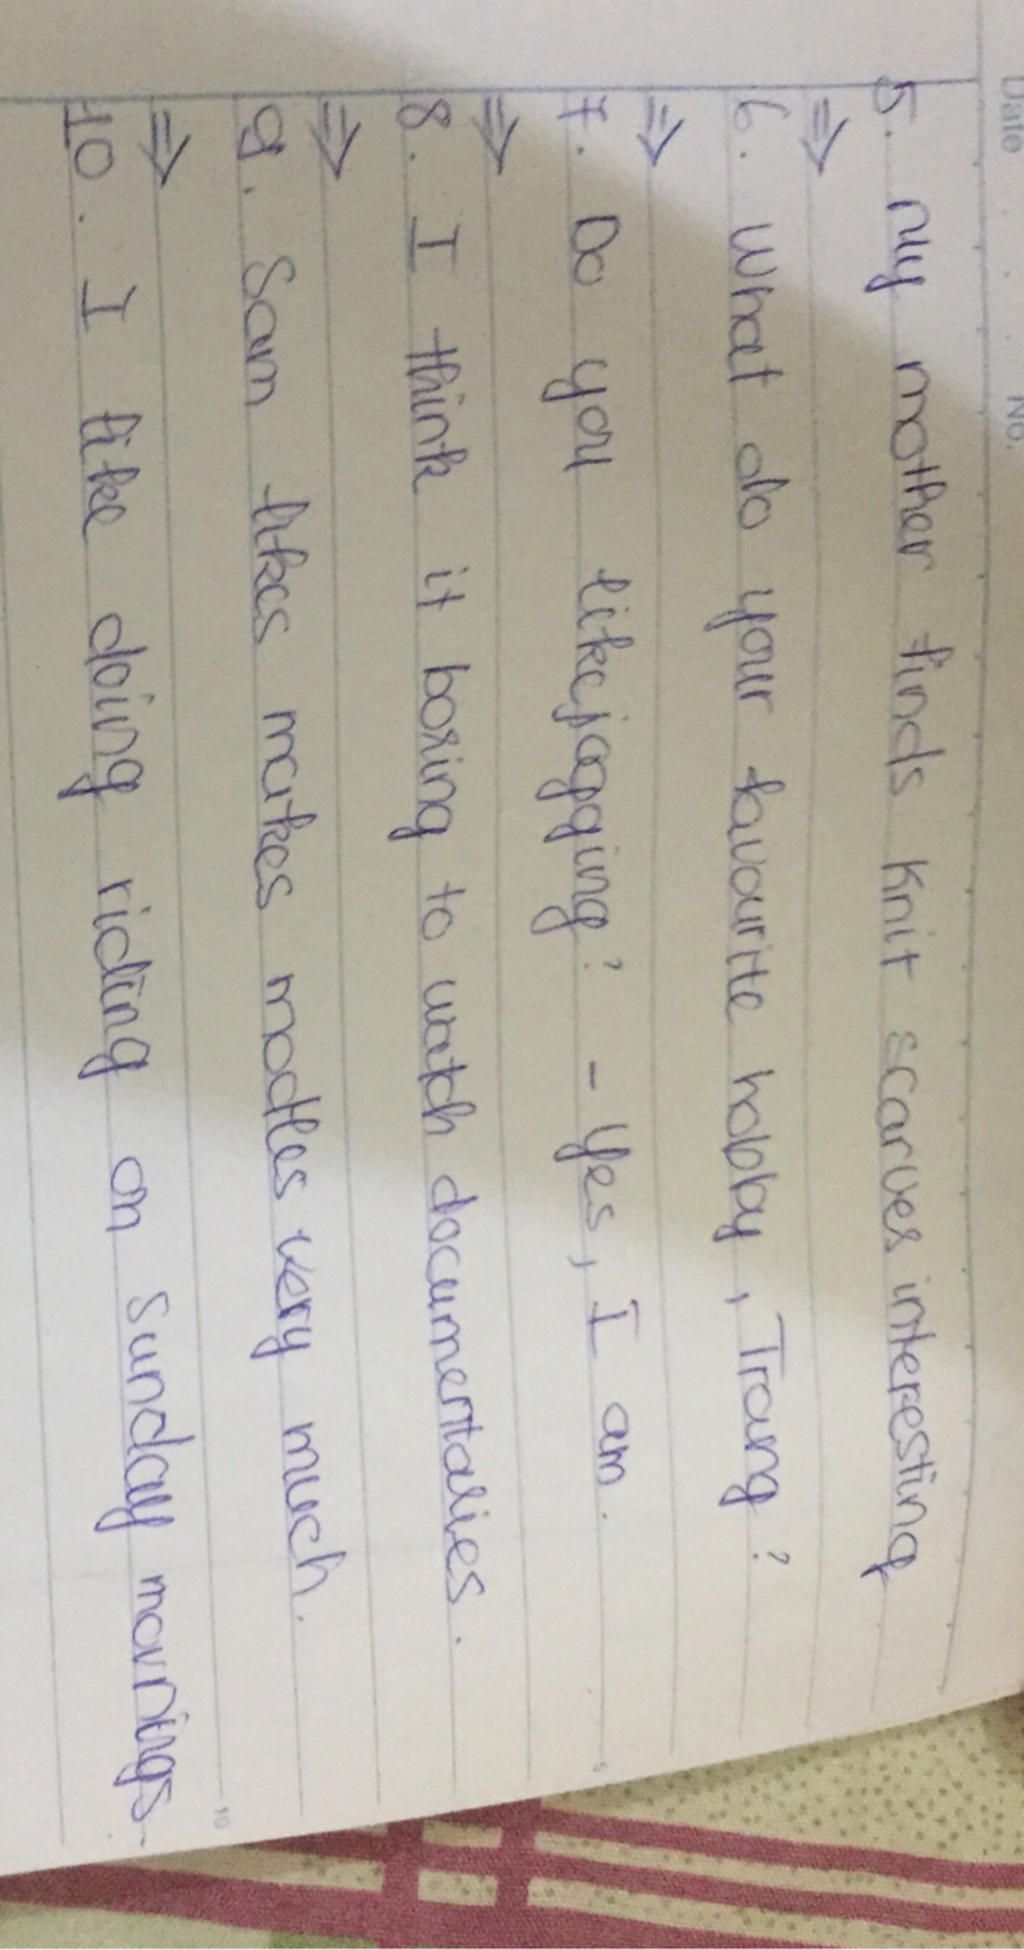 Date No.
5. My mother finds knit scarves interesting
⇒
6. What do your favourite hobby, Trang?
⇒
7. Do you like jogging? - Yes, I am.
⇒
8. I think it boring to watch documentalies.
⇒
9. Sam likes makes modles very much.
⇒
10. I like doing riding on Sunday mornings